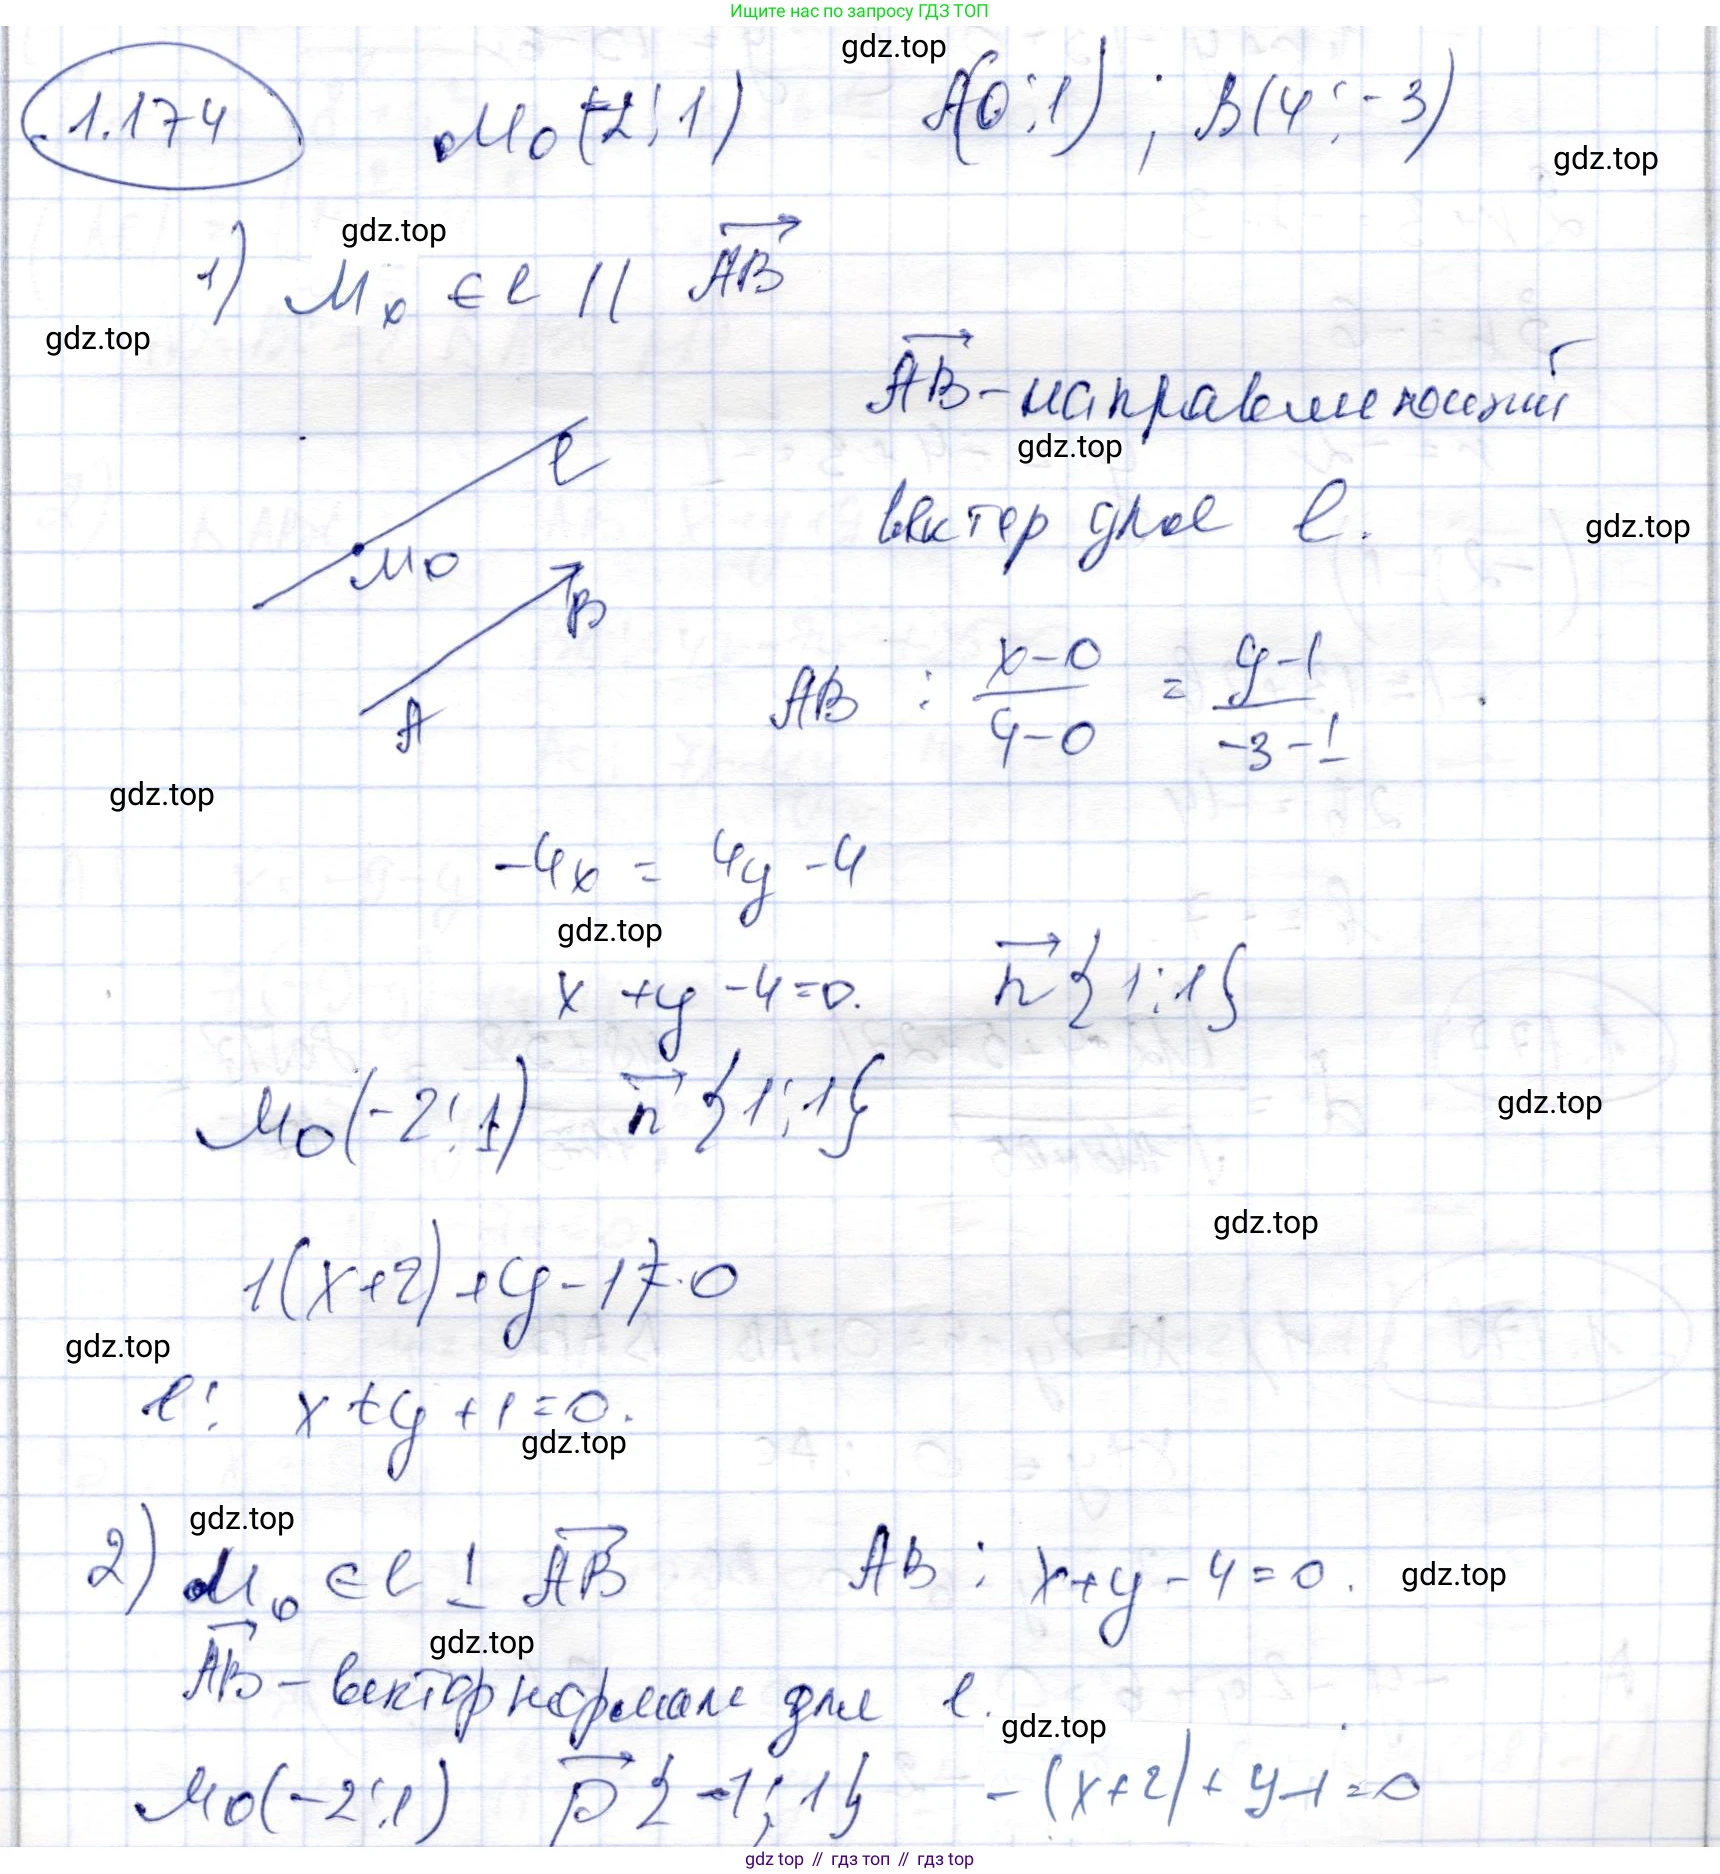 Ищите нас по запросу ГДЗ ТОП
gdz.top
1.174 M₀(-2; 1) A(0; 1) ; B(4; -3)
gdz.top
gdz.top
1) M₀ ∈ l || AB
gdz.top
AB - направляющий
gdz.top
вектор для l.
gdz.top
l
M₀
B
A
AB : (x-0)/(4-0) = (y-1)/(-3-1)
gdz.top
-4x = 4y -4
gdz.top
x + y -4=0. n {1; 1}
M₀(-2; 1) n {1; 1}
gdz.top
gdz.top
1(x+2)+y-1=0
gdz.top
l: x+y+1=0.
gdz.top
gdz.top
2) M₀ ∈ l ⊥ AB AB : x+y-4=0.
gdz.top
gdz.top
AB - вектор нормали для l.
gdz.top
M₀(-2; 1) p {-1; 1} -(x+2)+y-1=0
gdz top // гдз топ // гдз top